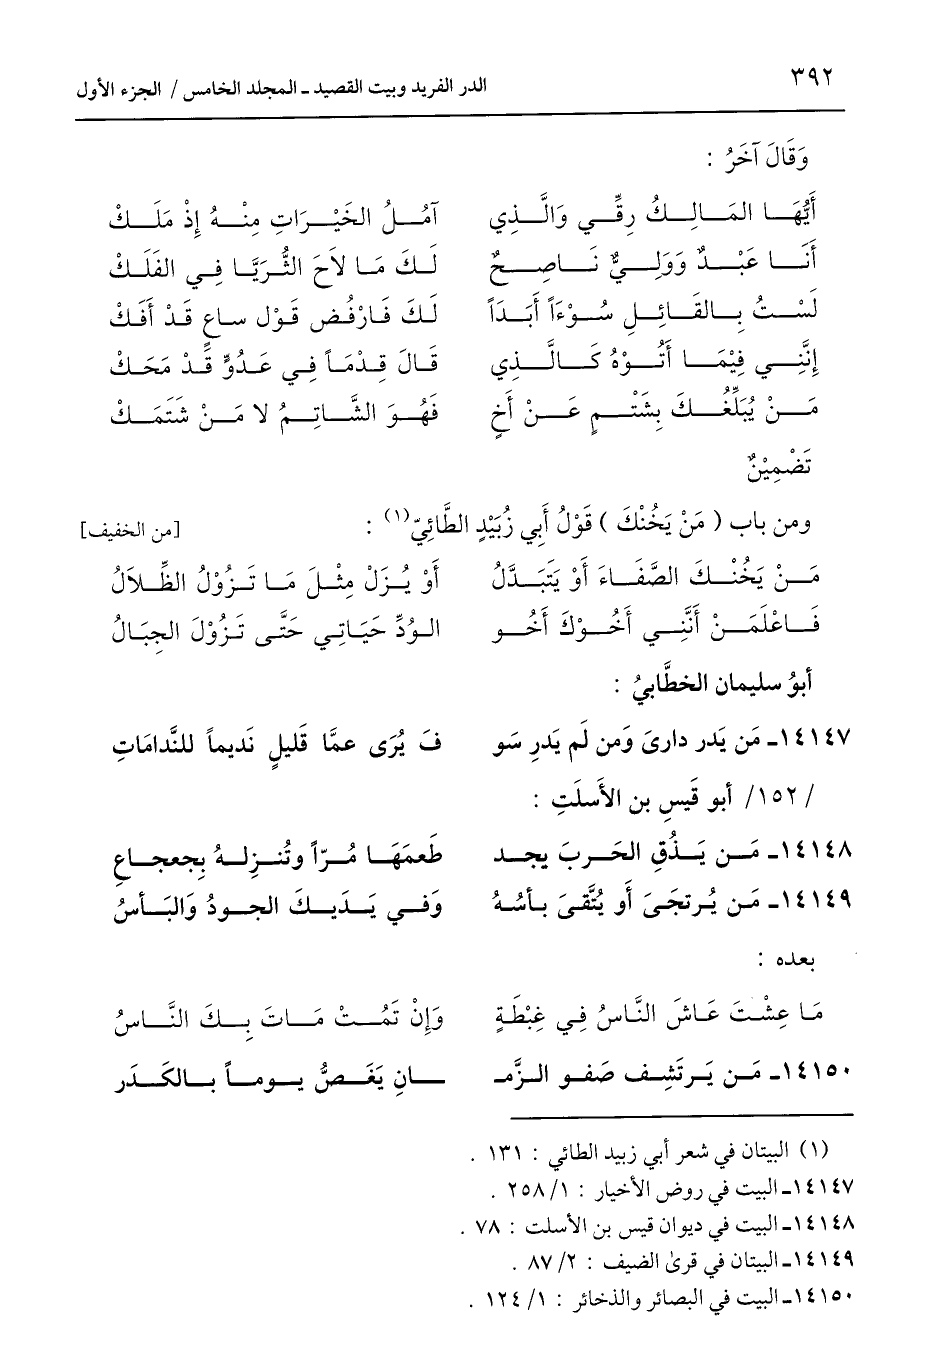 ٣٩٢ الدر الفريد وبيت القصيد ـ المجلد الخامس / الجزء الأول
وَقَالَ آخَرُ :
أَيُّهَا المَالِكُ رِقِّي وَالَّذِي آمُلُ الخَيْرَاتِ مِنْهُ إِذْ مَلَكْ
أَنَا عَبْدٌ وَوَلِيٌّ نَاصِحٌ لَكَ مَا لاَحَ الثُّرَيَّا فِي الفَلَكْ
لَسْتُ بِالقَائِلِ سُوْءَاً أَبَدَاً لَكَ فَارْفُضْ قَوْلَ سَاعٍ قَدْ أَفَكْ
إِنَّنِي فِيْمَا أَتُوْهُ كَالَّذِي قَالَ قِدْمَاً فِي عَدُوٍّ قَدْ مَحَكْ
مَنْ يُبَلِّغُكَ بِشَتْمٍ عَنْ أَخٍ فَهُوَ الشَّاتِمُ لا مَنْ شَتَمَكْ
تَضْمِيْنٌ
ومن باب ( مَنْ يَخُنْكَ ) قَوْلُ أَبِي زُبَيْدٍ الطَّائِيّ(١) : [من الخفيف]
مَنْ يَخُنْكَ الصَّفَاءَ أَوْ يَتَبَدَّلُ أَوْ يُزَلْ مِثْلَ مَا تَزُوْلُ الظِّلاَلُ
فَاعْلَمَنْ أَنَّنِي أَخُوْكَ أَخُو الوُدِّ حَيَاتِي حَتَّى تَزُوْلَ الجِبَالُ
أبوُ سليمان الخطَّابيُ :
١٤١٤٧ـ مَن يَدر دارىَ وَمن لَم يَدرِ سَو فَ يُرَى عمَّا قَليلٍ نَديماً للنَّدامَاتِ
/ ١٥٢/ أبو قَيسِ بن الأَسلَتِ :
١٤١٤٨ـ مَن يَذُقِ الحَربَ يجد طَعمَهَا مُرّاً وتُنزلهُ بِجعجاعِ
١٤١٤٩ـ مَن يُرتجَىَ أَو يُتَّقىَ بأسُهُ وَفي يَدَيكَ الجودُ وَالبَأسُ
بعده :
مَا عِشْتَ عَاشَ النَّاسُ فِي غِبْطَةٍ وَإِنْ تَمُتْ مَاتَ بِكَ النَّاسُ
١٤١٥٠ـ مَن يَرتَشِف صَفو الزَّمـ ـانِ يَغَصُّ يوماً بالكَدَر
(١) البيتان في شعر أبي زبيد الطائي : ١٣١ .
١٤١٤٧ـ البيت في روض الأخيار : ١/ ٢٥٨ .
١٤١٤٨ـ البيت في ديوان قيس بن الأسلت : ٧٨ .
١٤١٤٩ـ البيتان في قرىٰ الضيف : ٢/ ٨٧ .
١٤١٥٠ـ البيت في البصائر والذخائر : ١/ ١٢٤ .